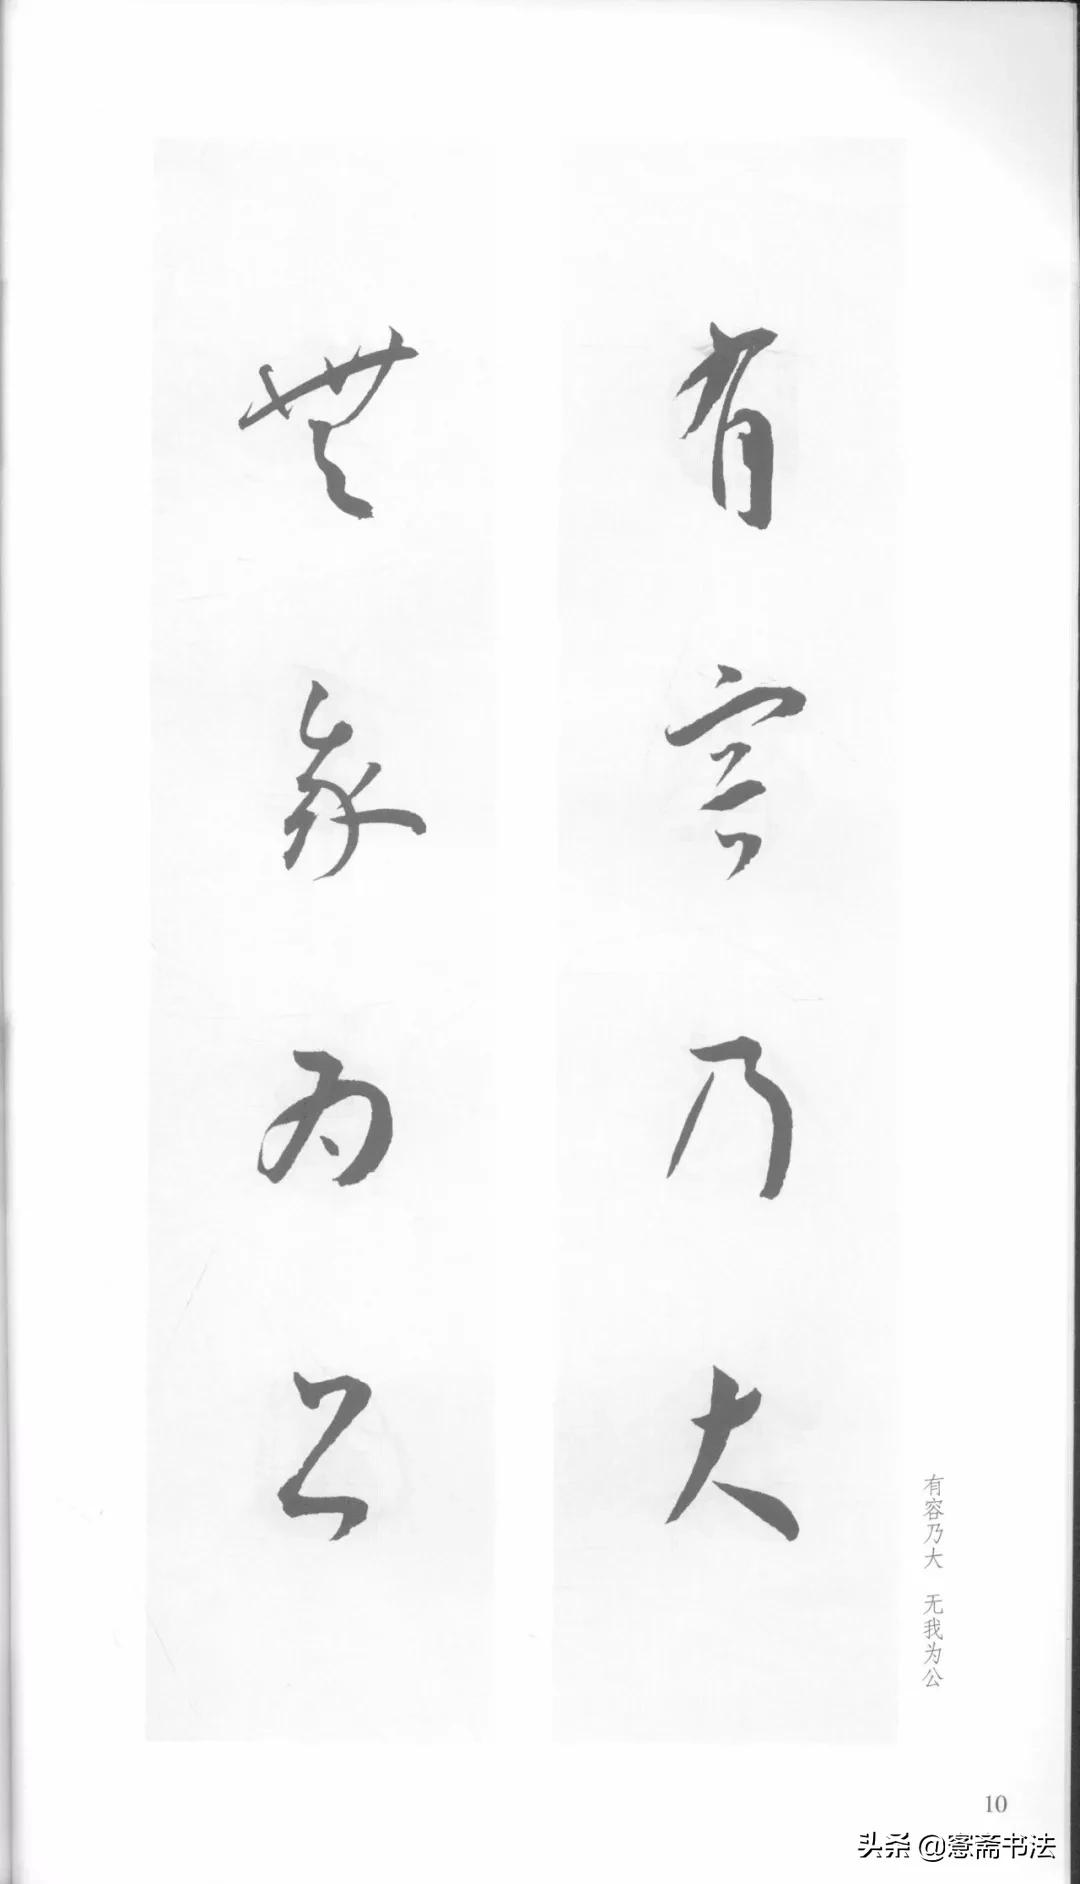 有容乃大
無我为公
有容乃大 无我为公
10
头条 @窓斋书法